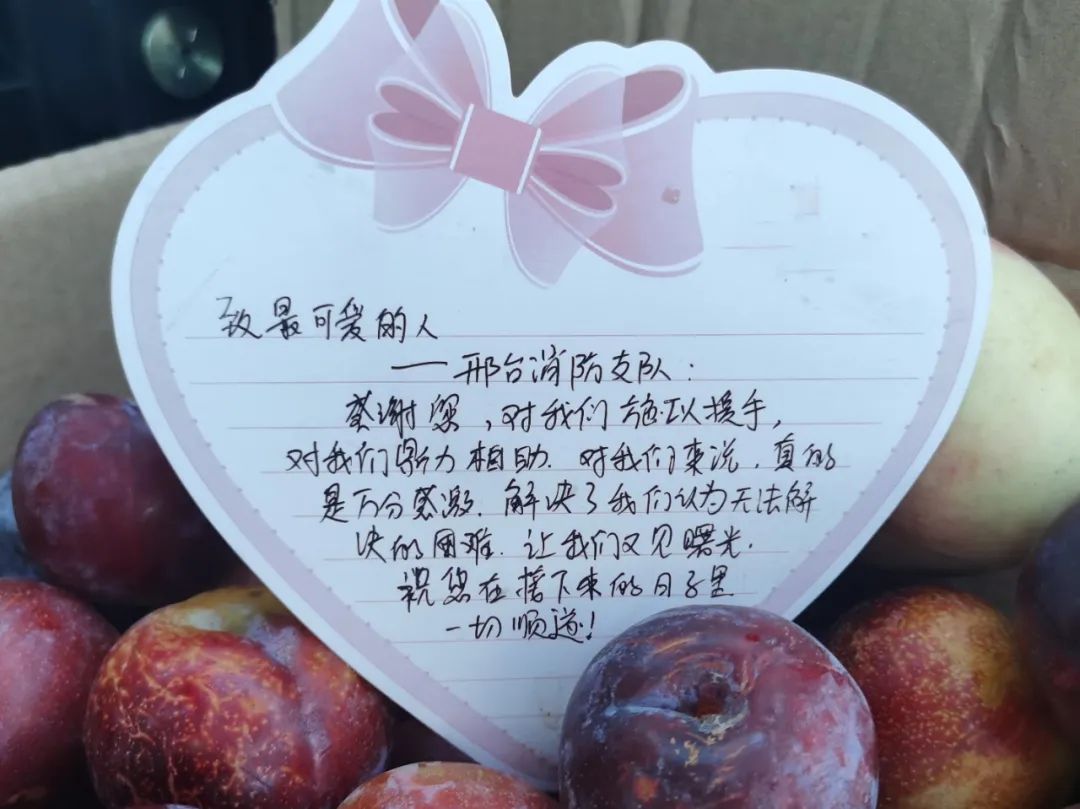 致最可爱的人
——邢台消防支队：
感谢您，对我们施以援手，
对我们鼎力相助．对我们来说．真的
是万分感激．解决了我们认为无法解
决的困难．让我们又见曙光．
祝您在接下来的日子里
一切顺遂！